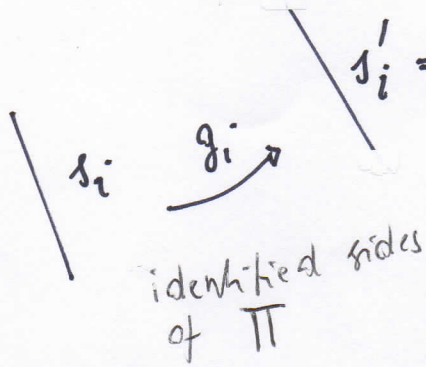 s'ᵢ =
sᵢ
gᵢ
identified sides
of Π